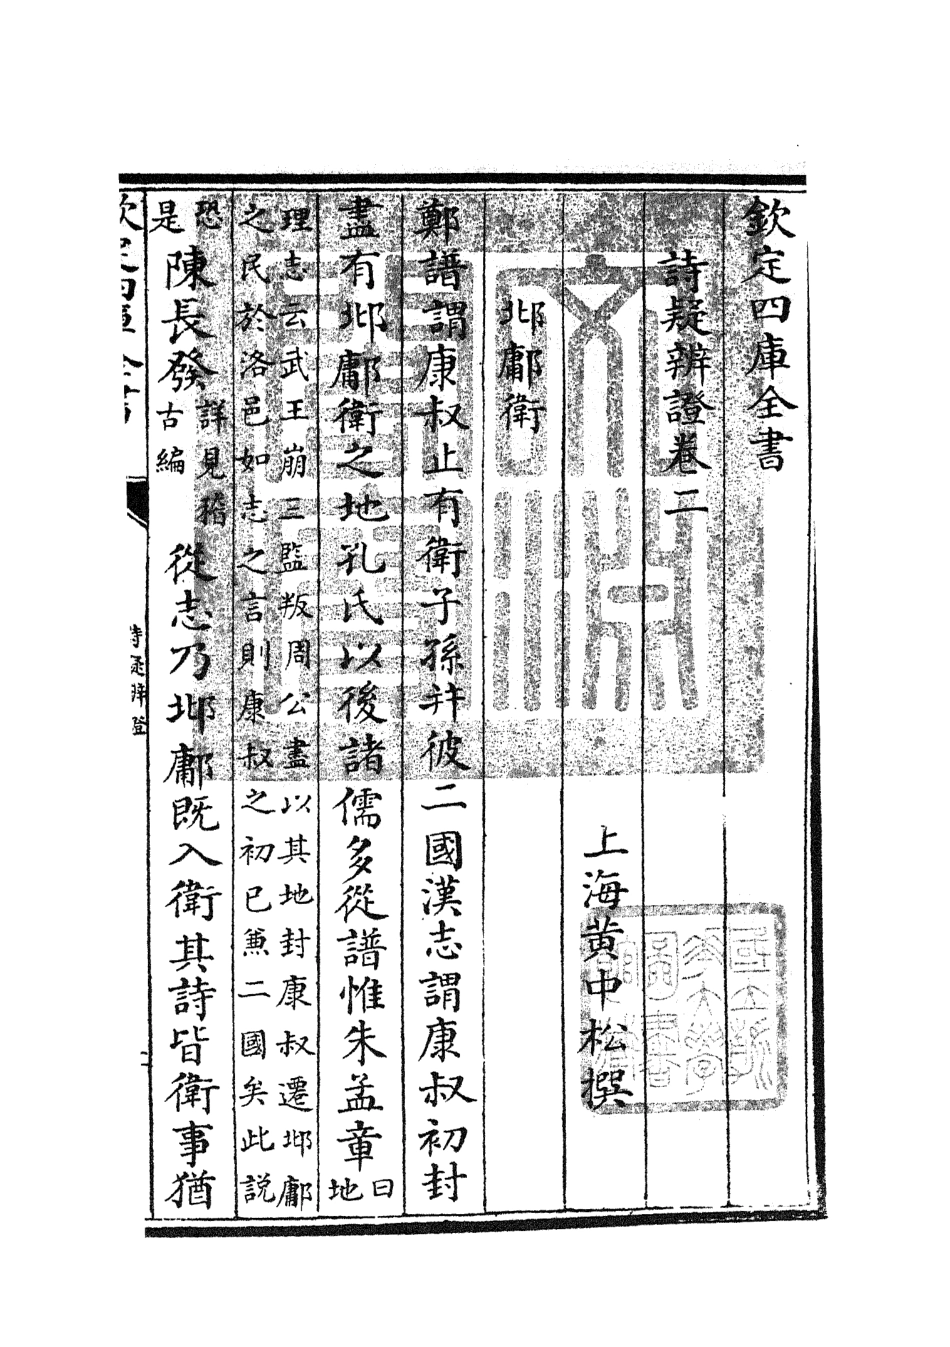 欽定四庫全書
詩疑辨證卷二
上海黄中松撰
邶鄘衛
鄭譜謂康叔止有衛子孫并彼二國漢志謂康叔初封
盡有邶鄘衛之地孔氏以後諸儒多從譜惟朱孟章曰地
理志云武王崩三監叛周公盡以其地封康叔遷邶鄘
之民於洛邑如志之言則康叔之初已兼二國矣此説
恐是陳長發詳見稽古編從志乃邶鄘既入衛其詩皆衛事猶
詩疑辨證